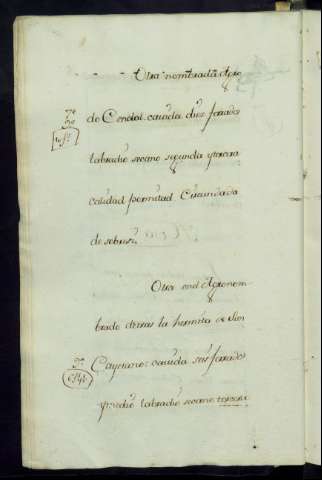 Otra nombrada Agro
do Cendal. cavida diez ferrados
labradio secano segunda y tercera
calidad por mitad Circundada
de sobre si
Otra en el Agro nom-
brado detras la hermita de Sn
Cayetano: cavida seis ferrados
y medio labradio secano tercera